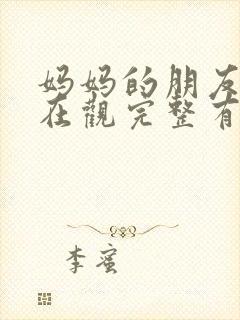 妈妈的朋友
在觀完整有
李蜜